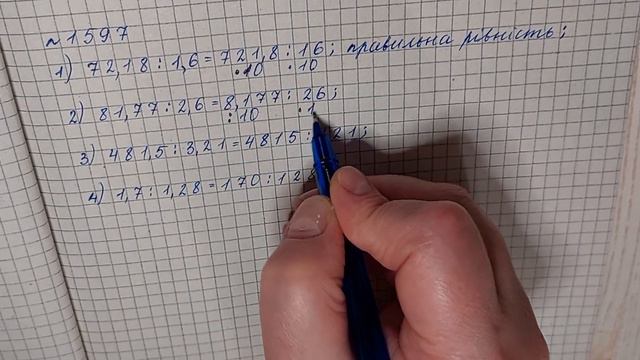 №1597
1) 72,18 : 1,6 = 721,8 : 16; правильна рівність;
·10 ·10
2) 81,77 : 2,6 = 8,177 : 26;
:10 ·1
3) 481,5 : 3,21 = 4815 : 321;
4) 1,7 : 1,28 = 170 : 128